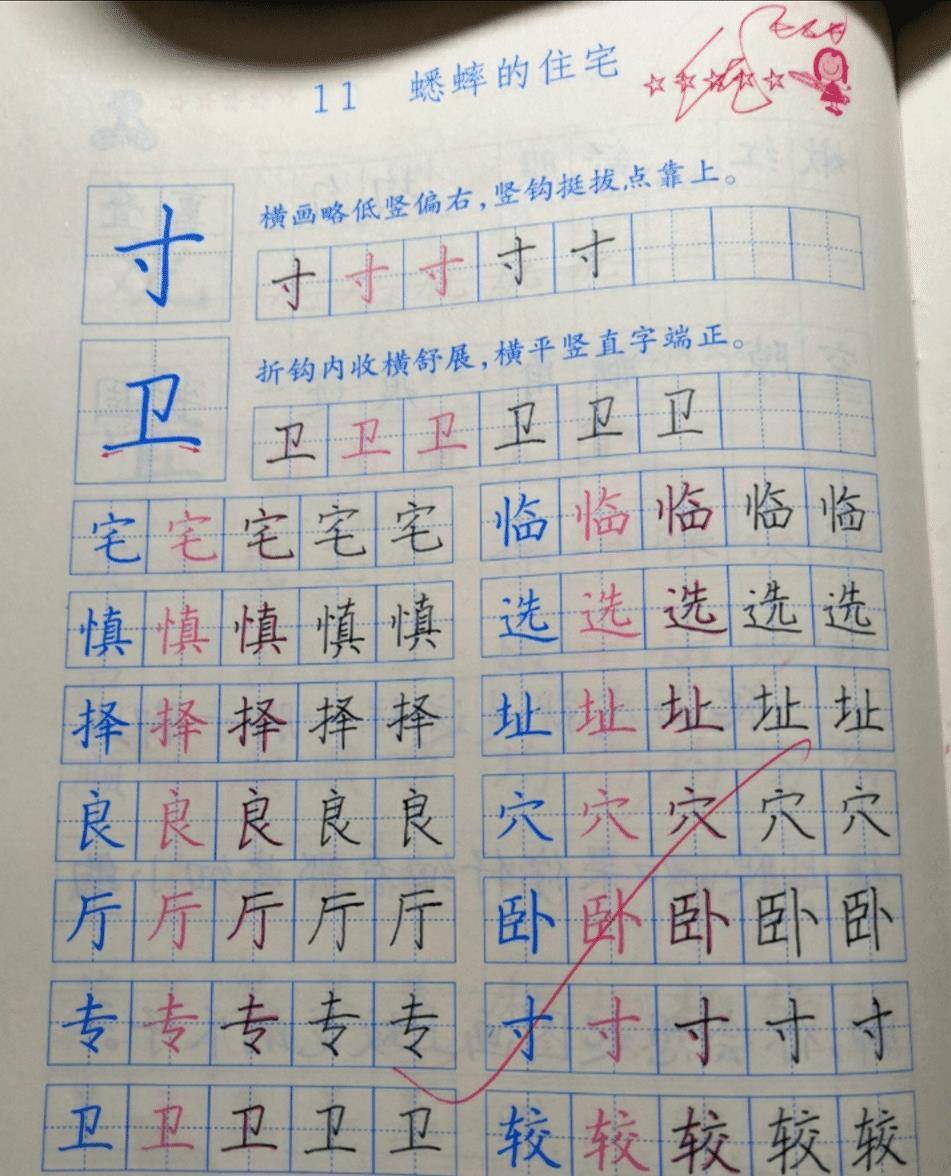 11 蟋蟀的住宅
横画略低竖偏右，竖钩挺拔点靠上。
寸 寸 寸 寸 寸 寸
折钩内收横舒展，横平竖直字端正。
卫 卫 卫 卫 卫 卫 卫
宅 宅 宅 宅 宅 临 临 临 临 临
慎 慎 慎 慎 慎 选 选 选 选 选
择 择 择 择 择 址 址 址 址 址
良 良 良 良 良 穴 穴 穴 穴 穴
厅 厅 厅 厅 厅 卧 卧 卧 卧 卧
专 专 专 专 专 寸 寸 寸 寸 寸
卫 卫 卫 卫 卫 较 较 较 较 较